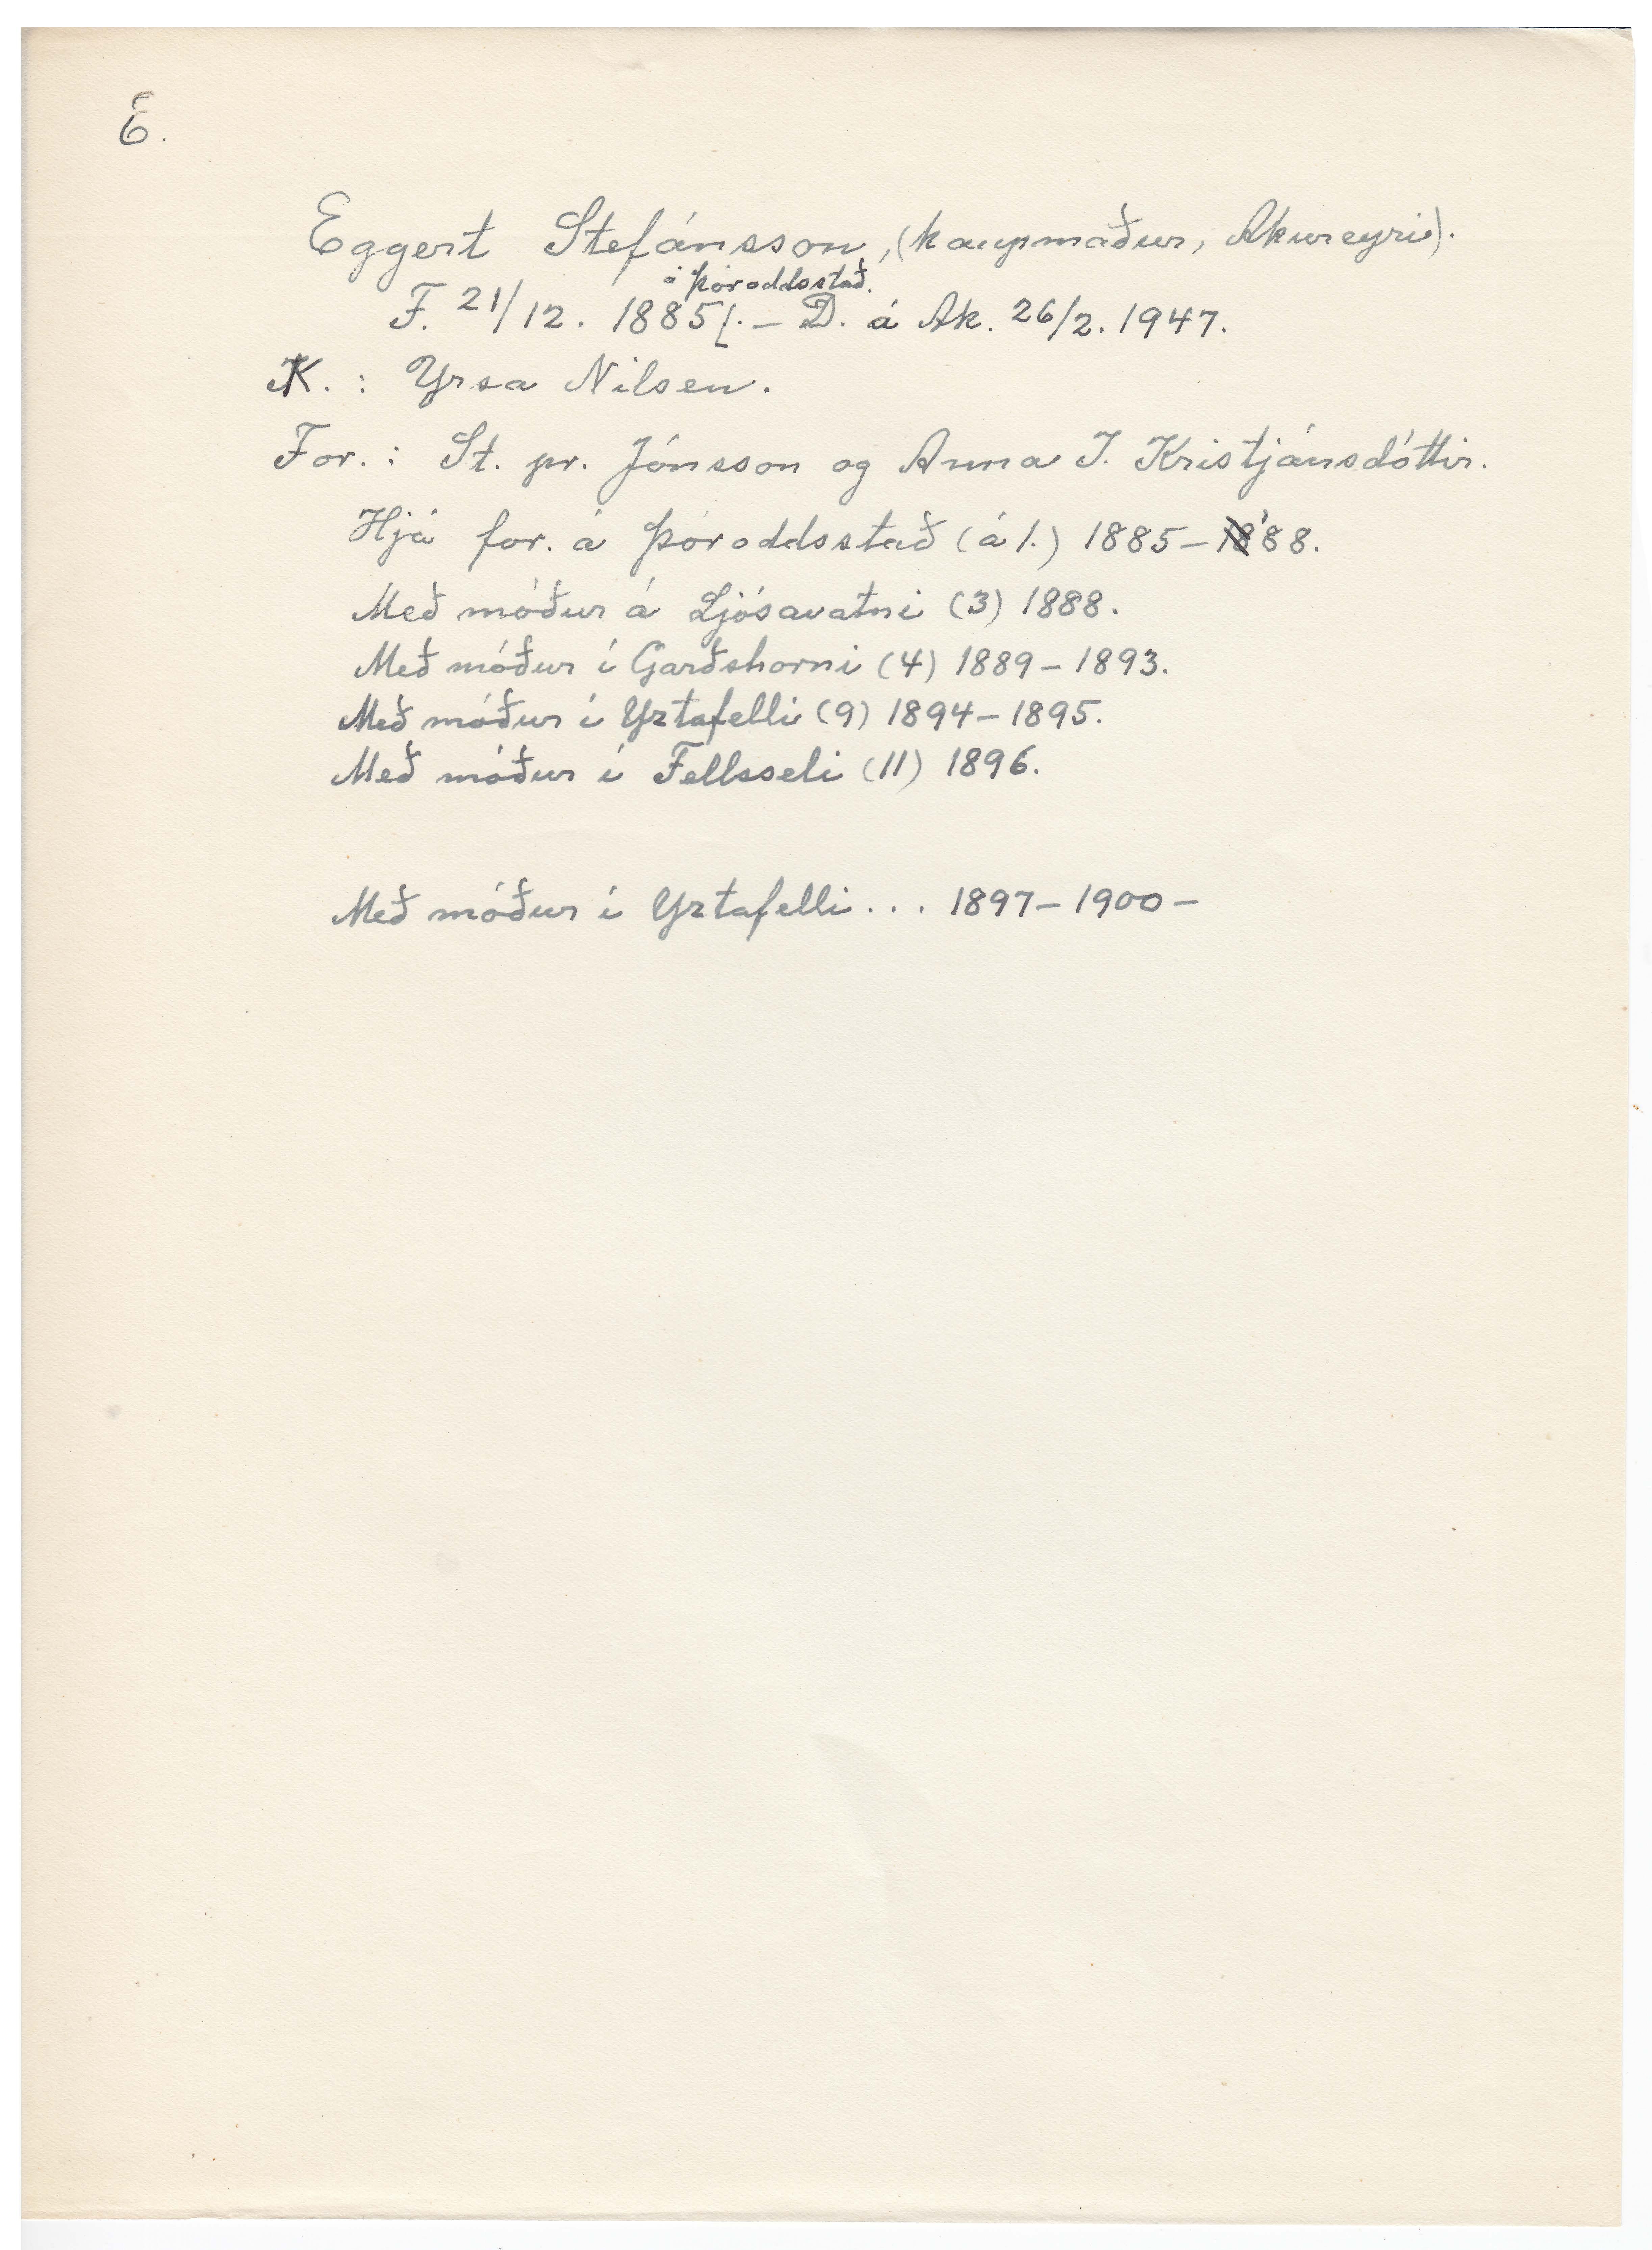 E.
Eggert Stefánsson, (kaupmaður, Akureyri).
á Þóroddsstað.
F. 21/12. 1885[. – D. á Ak. 26/2. 1947.
K. : Yrsa Nilsen.
For. : St. pr. Jónsson og Anna I. Kristjánsdóttir.
Hjá for. á Þóroddsstað (á 1.) 1885 – '88.
Með móður á Ljósavatni (3) 1888.
Með móður í Garðshorni (4) 1889 – 1893.
Með móður í Yztafelli (9) 1894 – 1895.
Með móður í Fellsseli (11) 1896.
Með móður í Yztafelli . . . 1897 – 1900 –